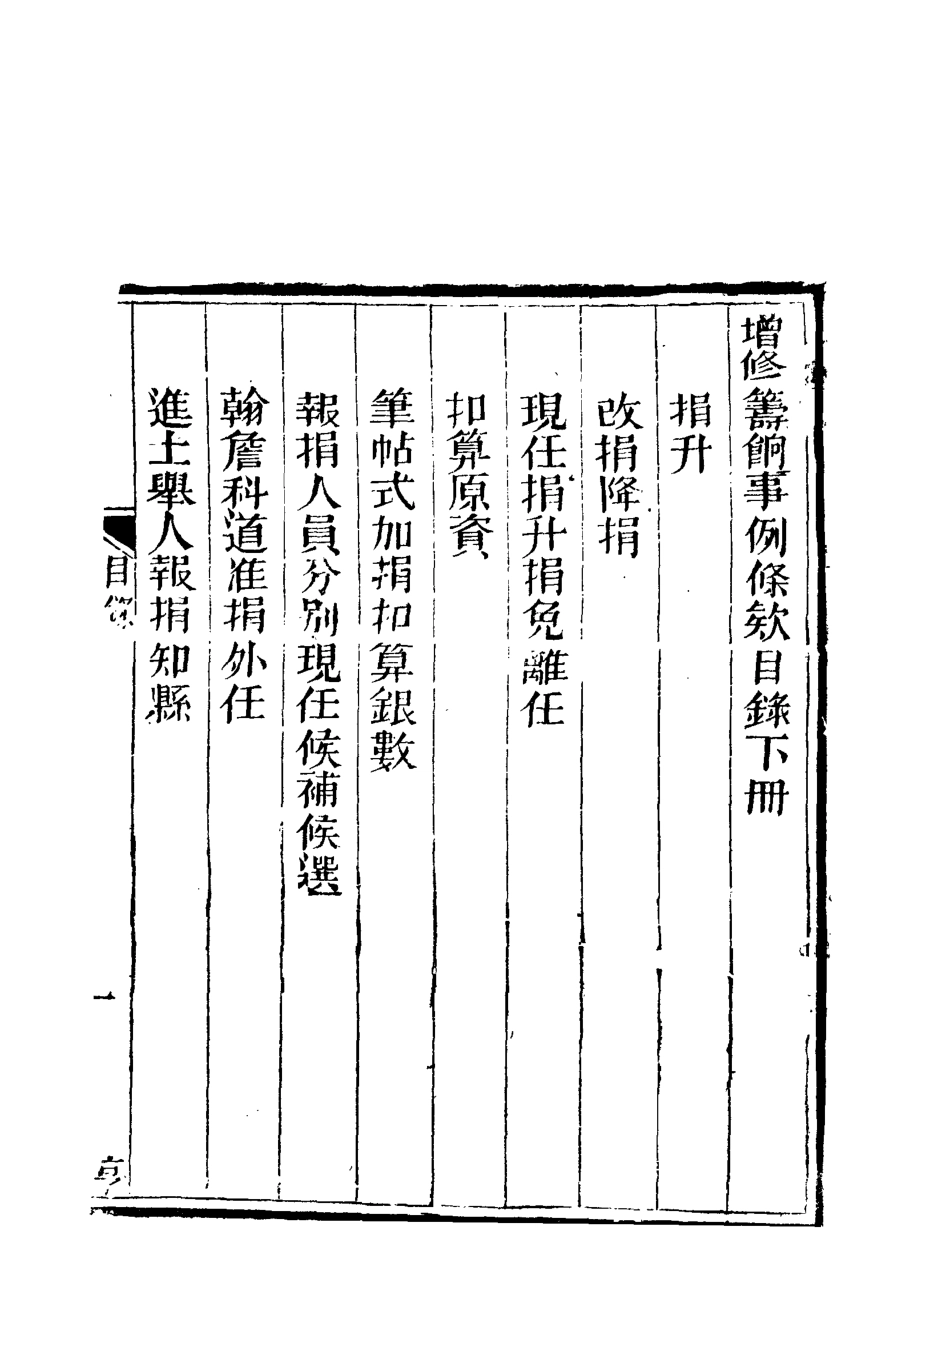 增修籌餉事例條欵目錄下冊
捐升
改捐降捐
現任捐升捐免離任
扣算原資
筆帖式加捐扣算銀數
報捐人員分別現任候補候選
翰詹科道准捐外任
進士舉人報捐知縣
目錄
一